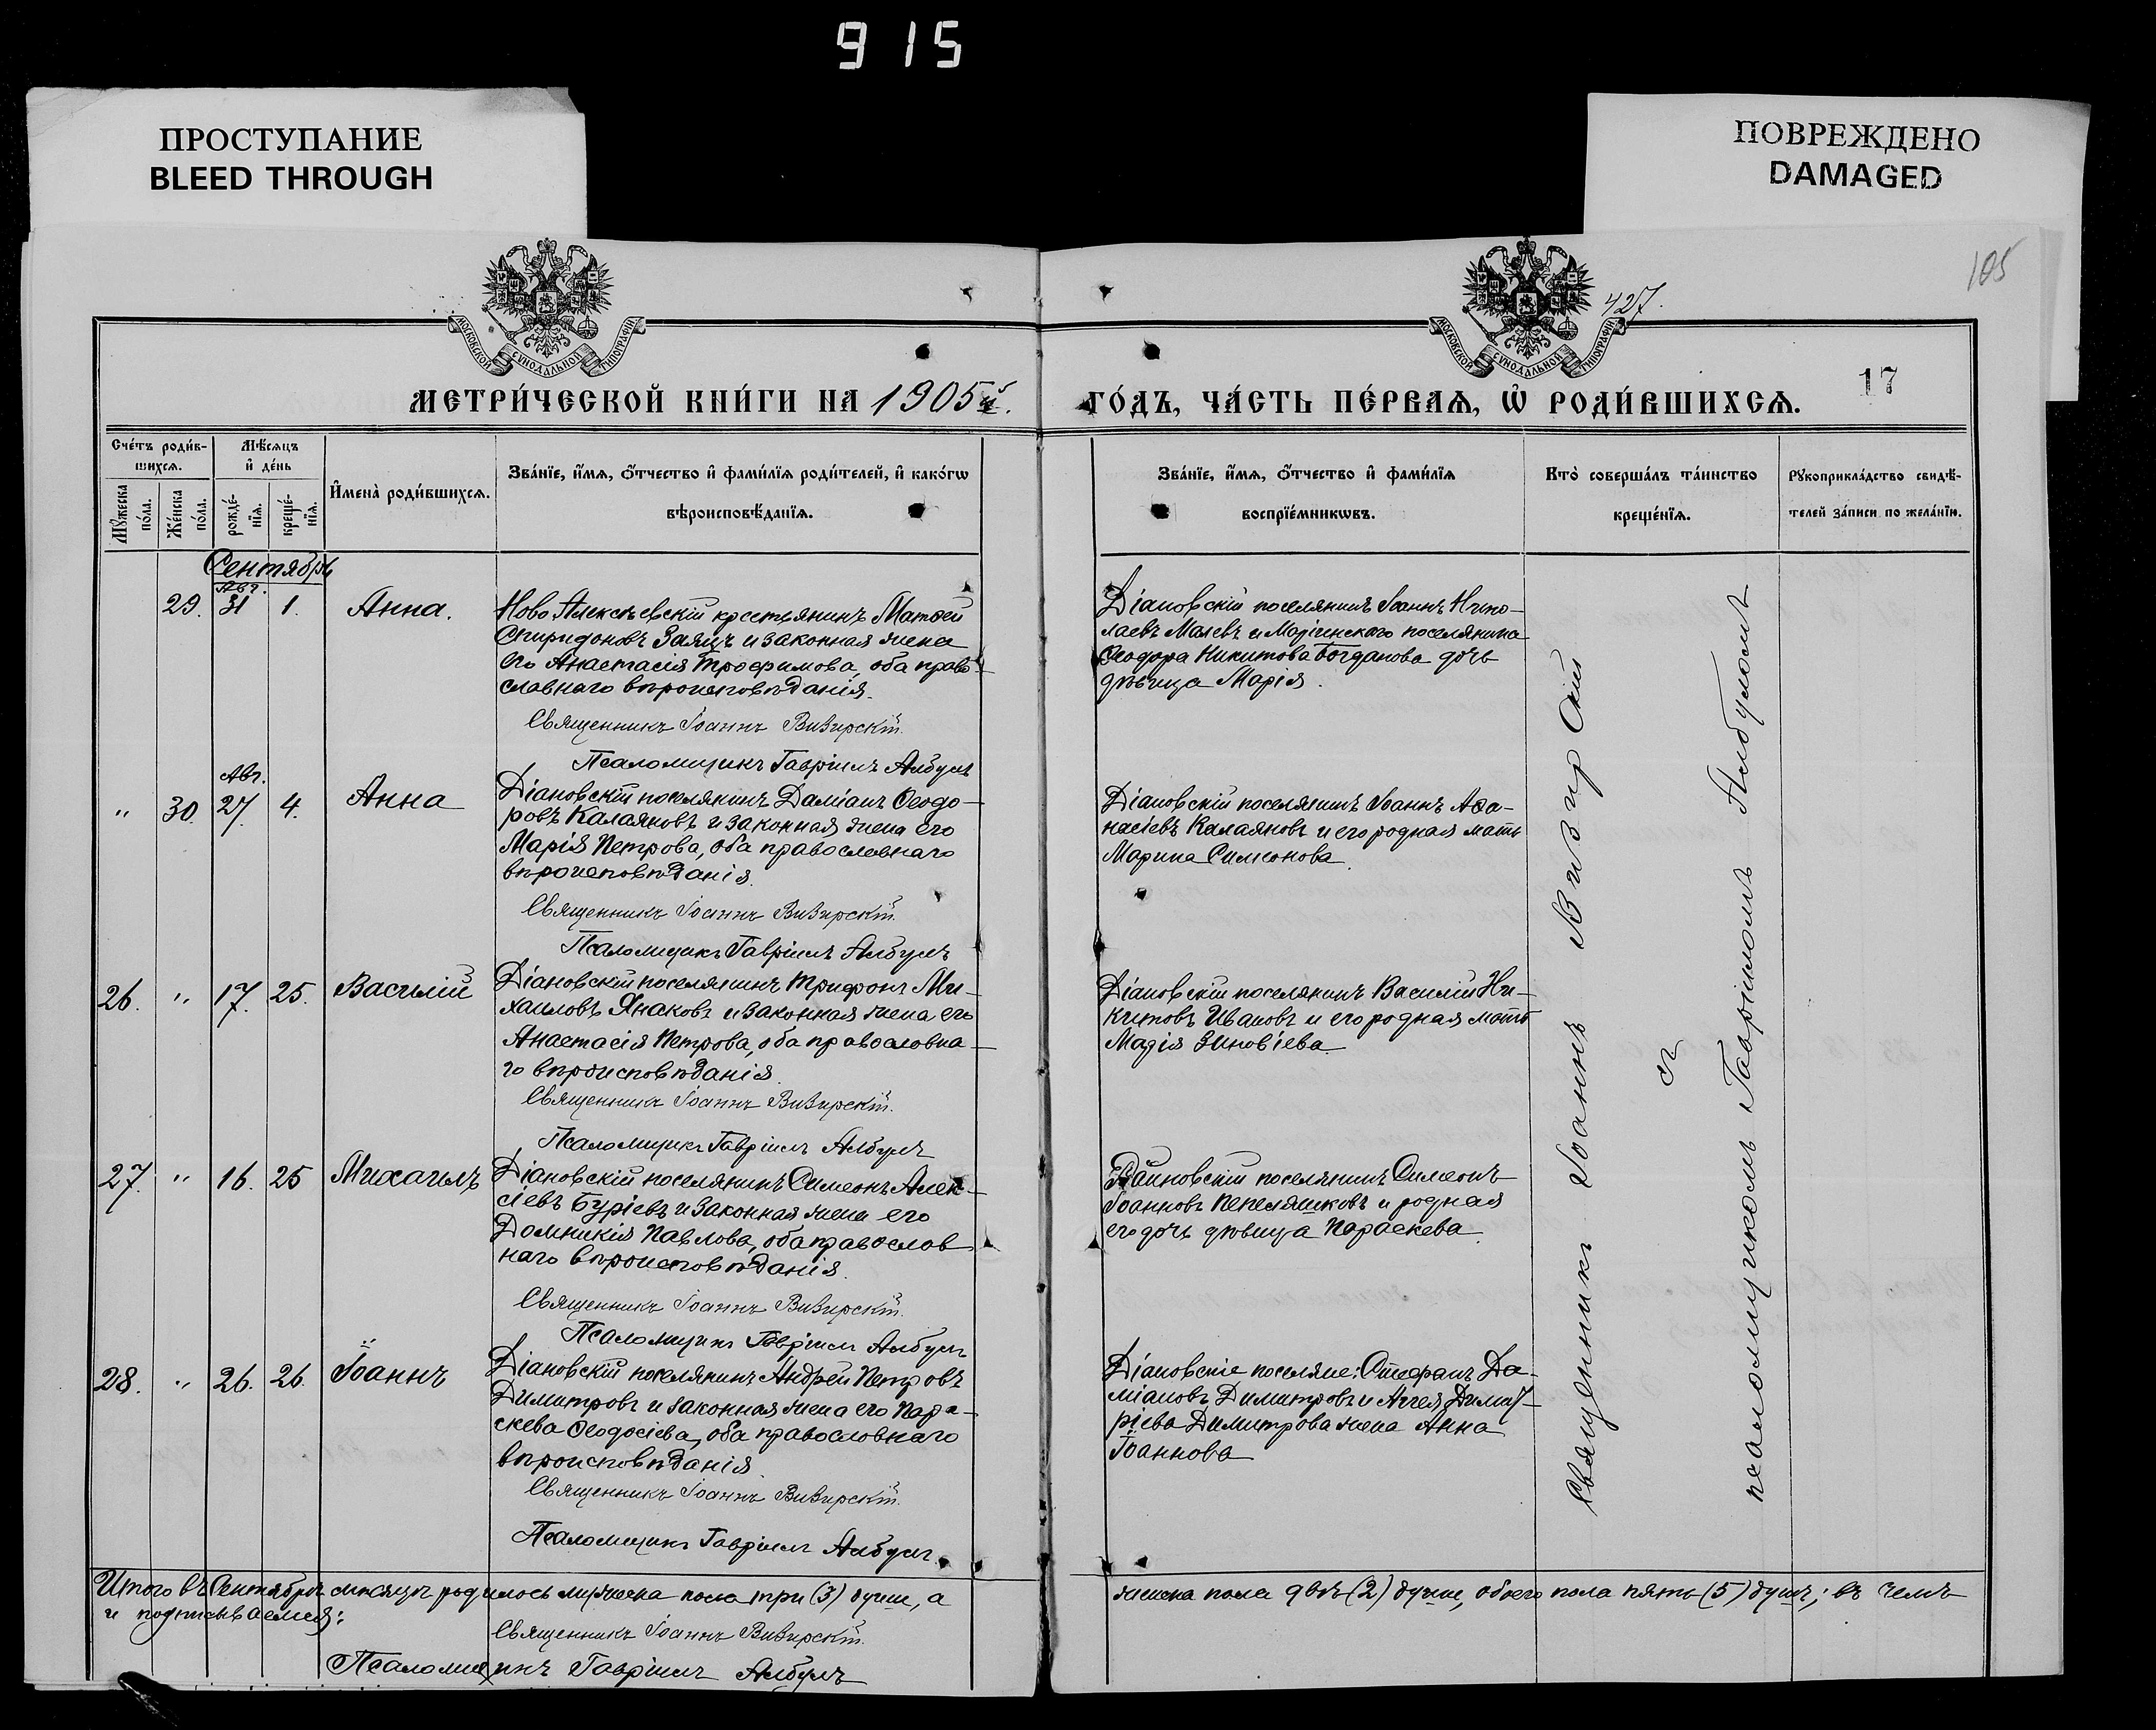 915
ПРОСТУПАНИЕ
BLEED THROUGH
ПОВРЕЖДЕНО
DAMAGED
105
427.
МОСКОВСКОЙ СѴНОДАЛЬНОЙ ТИПОГРАФІИ
МОСКОВСКОЙ СѴНОДАЛЬНОЙ ТИПОГРАФІИ
17
МЕТРИ́ЧЕСКОЙ КНИ́ГИ НА 1905й.
ГО́ДЪ, ЧА́СТЬ ПЕ́РВАѦ, Ѡ҆ РОДИ́ВШИХСѦ.
Сче́тъ роди́вшихсѧ.
Мѣ́сѧцъ и҆ де́нь
Мꙋ́жеска по́ла.
Же́нска по́ла.
рожде́нїѧ.
креще́нїѧ.
И҆мена̀ роди́вшихсѧ.
Зва́нїе, и҆́мѧ, ѻ҆́тчество и҆ фами́лїѧ роди́телей, и҆ како́гѡ
вѣроисповѣ́данїѧ.
Зва́нїе, и҆́мѧ, ѻ҆́тчество и҆ фами́лїѧ
воспрїе́мникѡвъ.
Кто̀ соверша́лъ та́инство
креще́нїѧ.
Рꙋкоприкла́дство свидѣ́-
телей за́писи по жела́нїю.
Сентябрь
Авг.
29. 31 1. Анна.
Ново Алексѣевскій крестьянинъ Матѳей
Спиридоновъ Заяцъ и законная жена
его Анастасія Трофимова, оба право-
славнаго вѣроисповѣданія.
Священникъ Іоаннъ Визирскій.
Псаломщикъ Гавріилъ Албулъ
Діановскій поселянинъ Іоаннъ Нико-
лаевъ Малевъ и Маріинскаго поселянина
Ѳеодора Никитова Богданова дочь
дѣвица Марія.
Авг.
" 30. 27. 4. Анна
Діановскій поселянинъ Даміанъ Ѳеодо-
ровъ Калаяновъ и законная жена его
Марія Петрова, оба православнаго
вѣроисповѣданія.
Священникъ Іоаннъ Визирскій.
Псаломщикъ Гавріилъ Албулъ
Діановскій поселянинъ Іоаннъ Аѳа-
насіевъ Калаяновъ и его родная мать
Марина Симеонова.
26. " 17. 25. Василій
Діановскій поселянинъ Трифонъ Ми-
хаиловъ Янаковъ и законная жена его
Анастасія Петрова, оба православна-
го вѣроисповѣданія.
Священникъ Іоаннъ Визирскій.
Псаломщикъ Гавріилъ Албулъ
Діановскій поселянинъ Василій Ни-
китовъ Ивановъ и его родная мать
Марія Зиновіева.
27. " 16. 25 Михаилъ
Діановскій поселянинъ Симеонъ Алек-
сіевъ Буріевъ и законная жена его
Домникія Павлова, оба православ
наго вѣроисповѣданія.
Священникъ Іоаннъ Визирскій.
Псаломщикъ Гавріилъ Албулъ
поселянинъ Симеонъ
Іоанновъ Пепеляшковъ и родная
его дочь дѣвица Параскева.
28. " 26. 26. Іоаннъ
Діановскій поселянинъ Андрей Петровъ
Димитровъ и законная жена его Пара-
скева Ѳеодосіева, оба православнаго
вѣроисповѣданія.
Священникъ Іоаннъ Визирскій.
Псаломщикъ Гавріилъ Албулъ.
Діановскіе поселяне: Стефанъ Да-
міановъ Димитровъ и Димит-
ріева Димитрова жена Анна
Іоаннова
Священникъ Іоаннъ Визирскій
съ
псаломщикомъ Гавріиломъ Албуломъ
Итого въ Сентябрѣ мѣсяцѣ родилось мужеска пола три (3) души, а
женска пола двѣ (2) души, обоего пола пять (5) душъ; въ чемъ
и подписываемся:
Священникъ Іоаннъ Визирскій.
Псаломщикъ Гавріилъ Албулъ